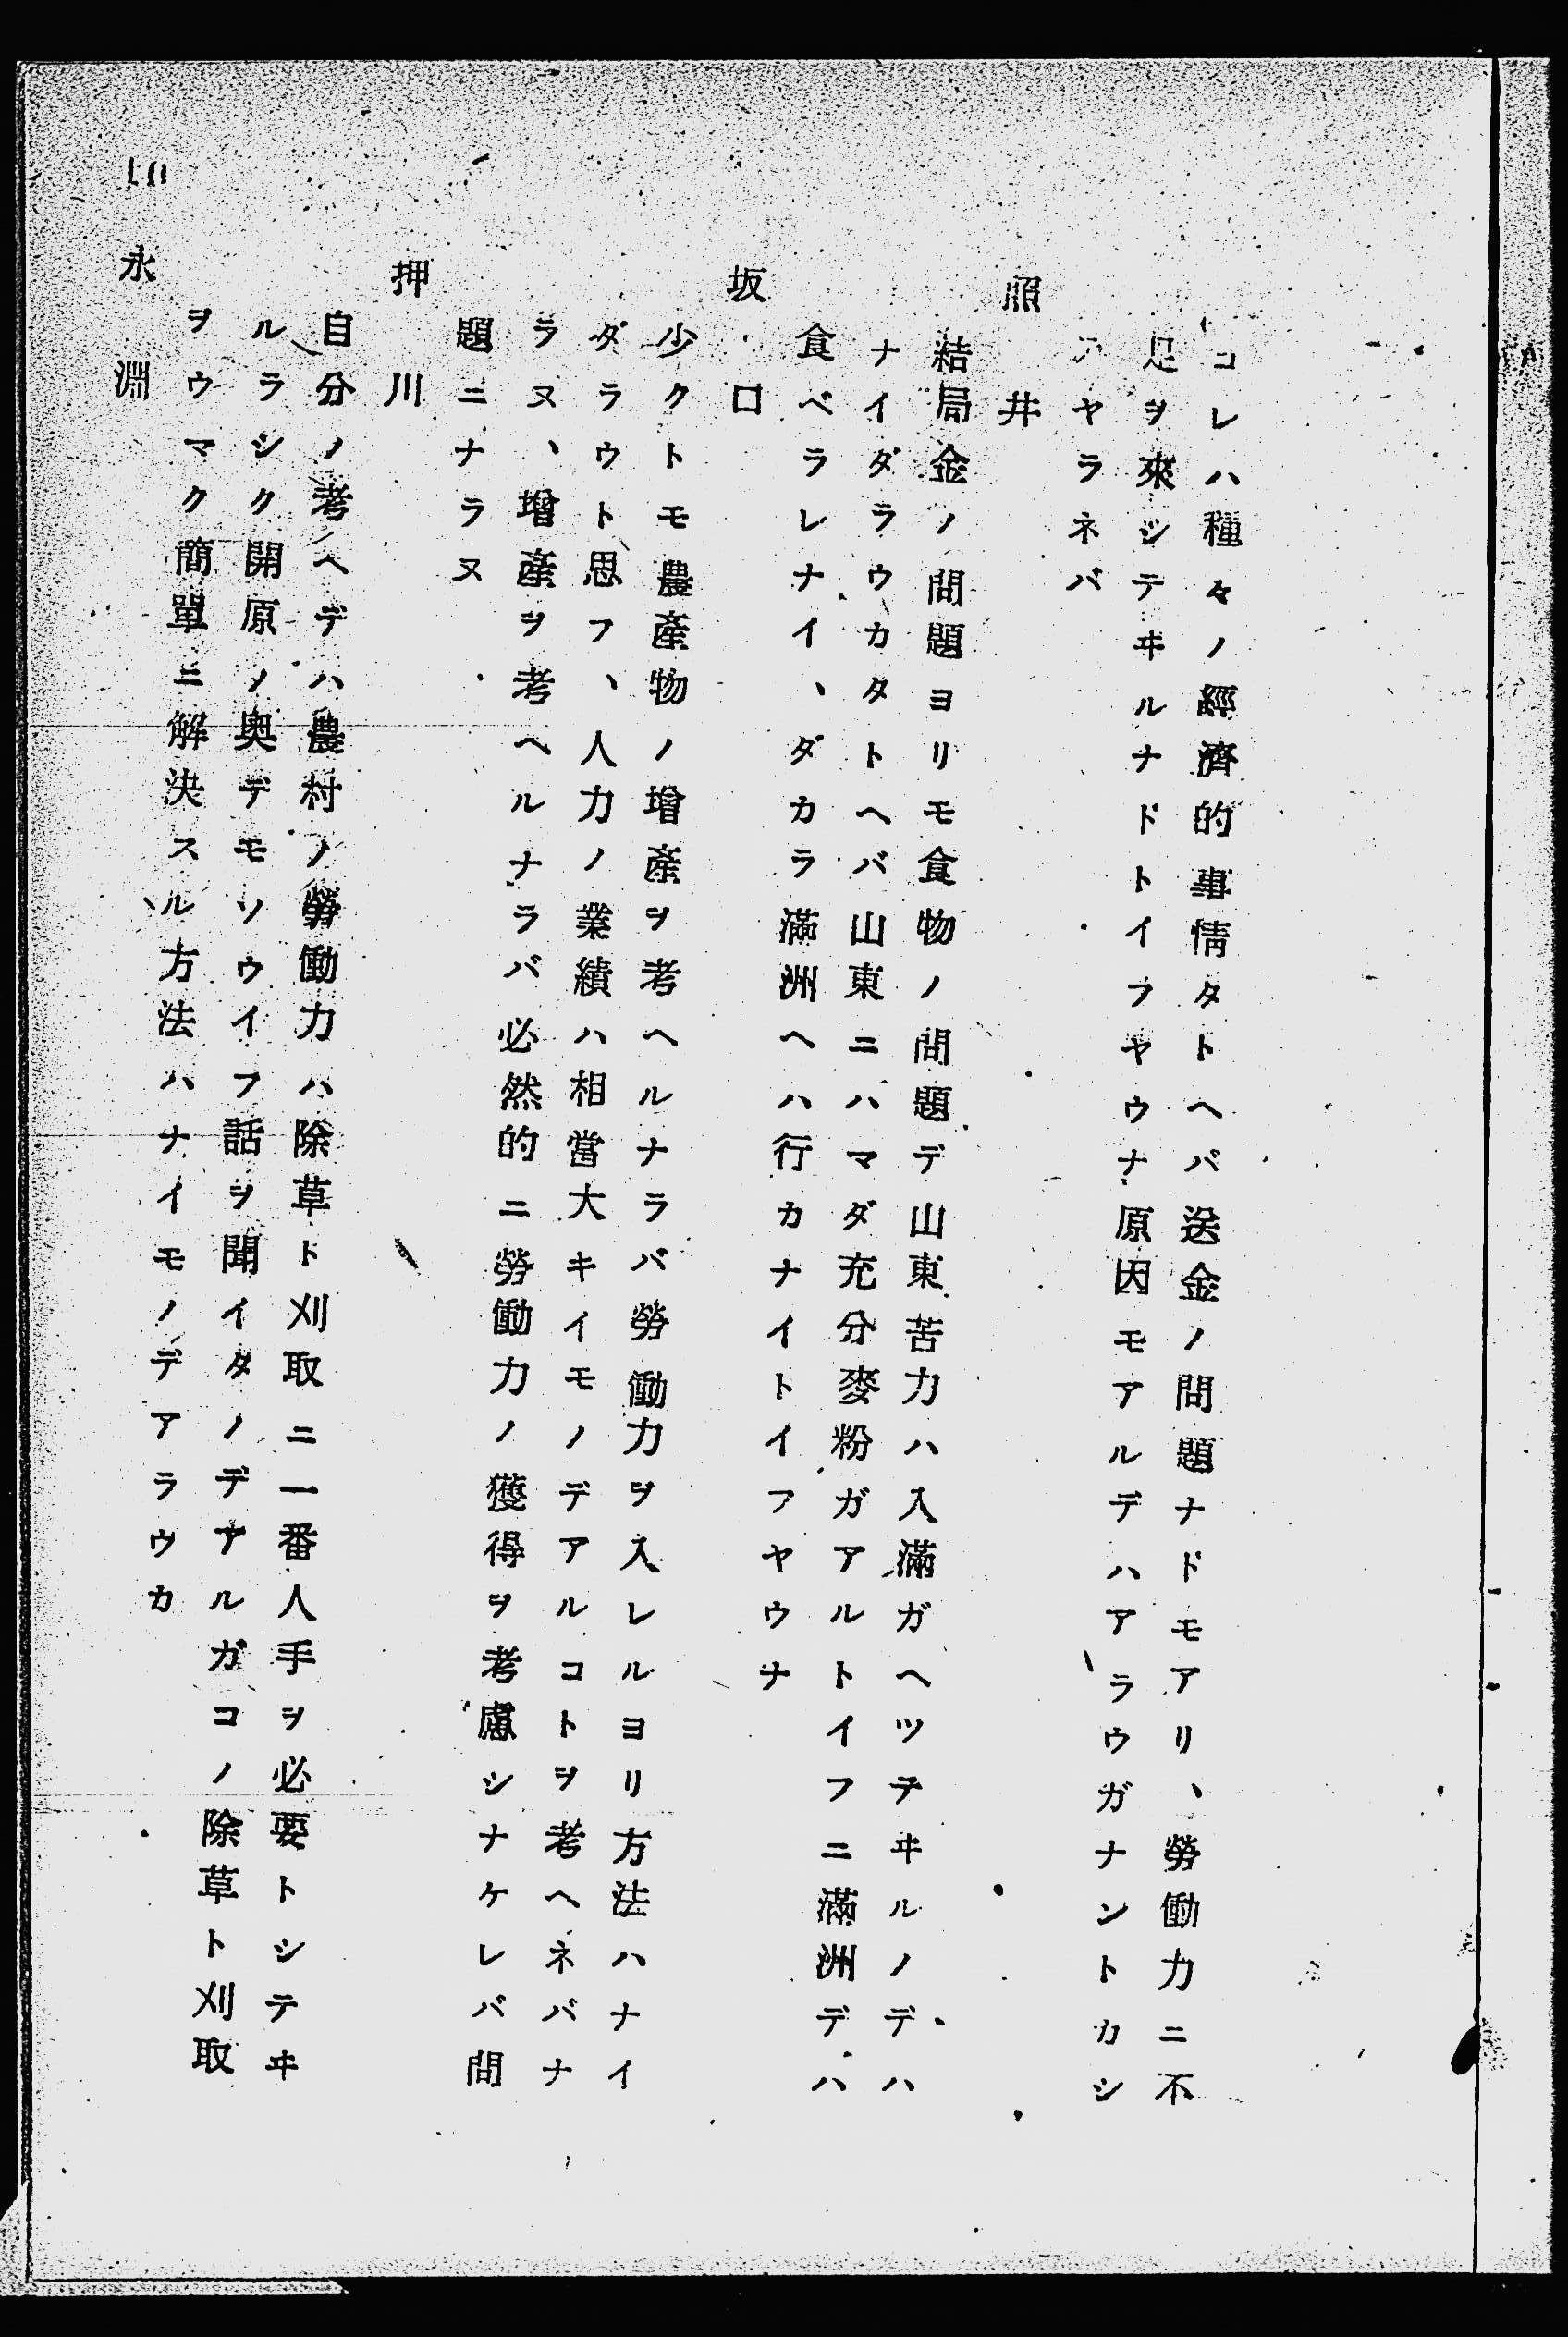 コレハ種々ノ經濟的事情タトヘバ送金ノ問題ナドモアリ、勞働力ニ不
足ヲ來シテヰルナドトイフヤウナ原因モアルデハアラウガナントカシ
テヤラネバ
照井
結局金ノ問題ヨリモ食物ノ問題デ山東苦力ハ入滿ガヘツテヰルノデハ
ナイダラウカタトヘバ山東ニハマダ充分麥粉ガアルトイフニ滿洲デハ
食ベラレナイ、ダカラ滿洲ヘハ行カナイトイフヤウナ
坂口
少クトモ農產物ノ增產ヲ考ヘルナラバ勞働力ヲ入レルヨリ方法ハナイ
ダラウト思フ、人力ノ業績ハ相當大キイモノデアルコトヲ考ヘネバナ
ラヌ、增產ヲ考ヘルナラバ必然的ニ勞働力ノ獲得ヲ考慮シナケレバ問
題ニナラヌ
押川
自分ノ考ヘデハ農村ノ勞働力ハ除草ト刈取ニ一番人手ヲ必要トシテヰ
ルラシク開原ノ奧デモソウイフ話ヲ聞イタノデアルガコノ除草ト刈取
ヲウマク簡單ニ解決スル方法ハナイモノデアラウカ
永淵